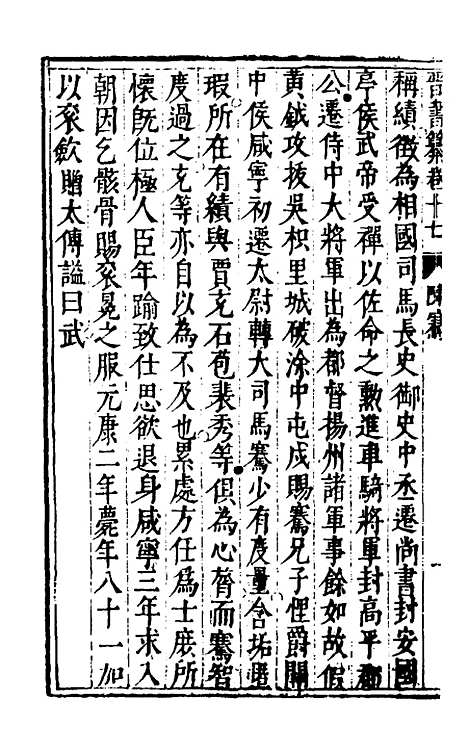 晉書纂卷十七 陳騫
稱績徵為相國司馬長史御史中丞遷尚書封安國
亭侯武帝受禪以佐命之勲進車騎將軍封高平郡
公遷侍中大將軍出為都督揚州諸軍事餘如故假
黄鉞攻拔吳枳里城破涂中屯戍賜騫兄子悝爵關
中侯咸寧初遷太尉轉大司馬騫少有度量含垢匿
瑕所在有績與賈充石苞裴秀等俱為心膂而騫智
度過之充等亦自以為不及也累處方任為士庶所
懷旣位極人臣年踰致仕思欲退身咸寧三年求入
朝因乞骸骨賜衮冕之服元康二年薨年八十一加
以衮歛贈太傅謚曰武